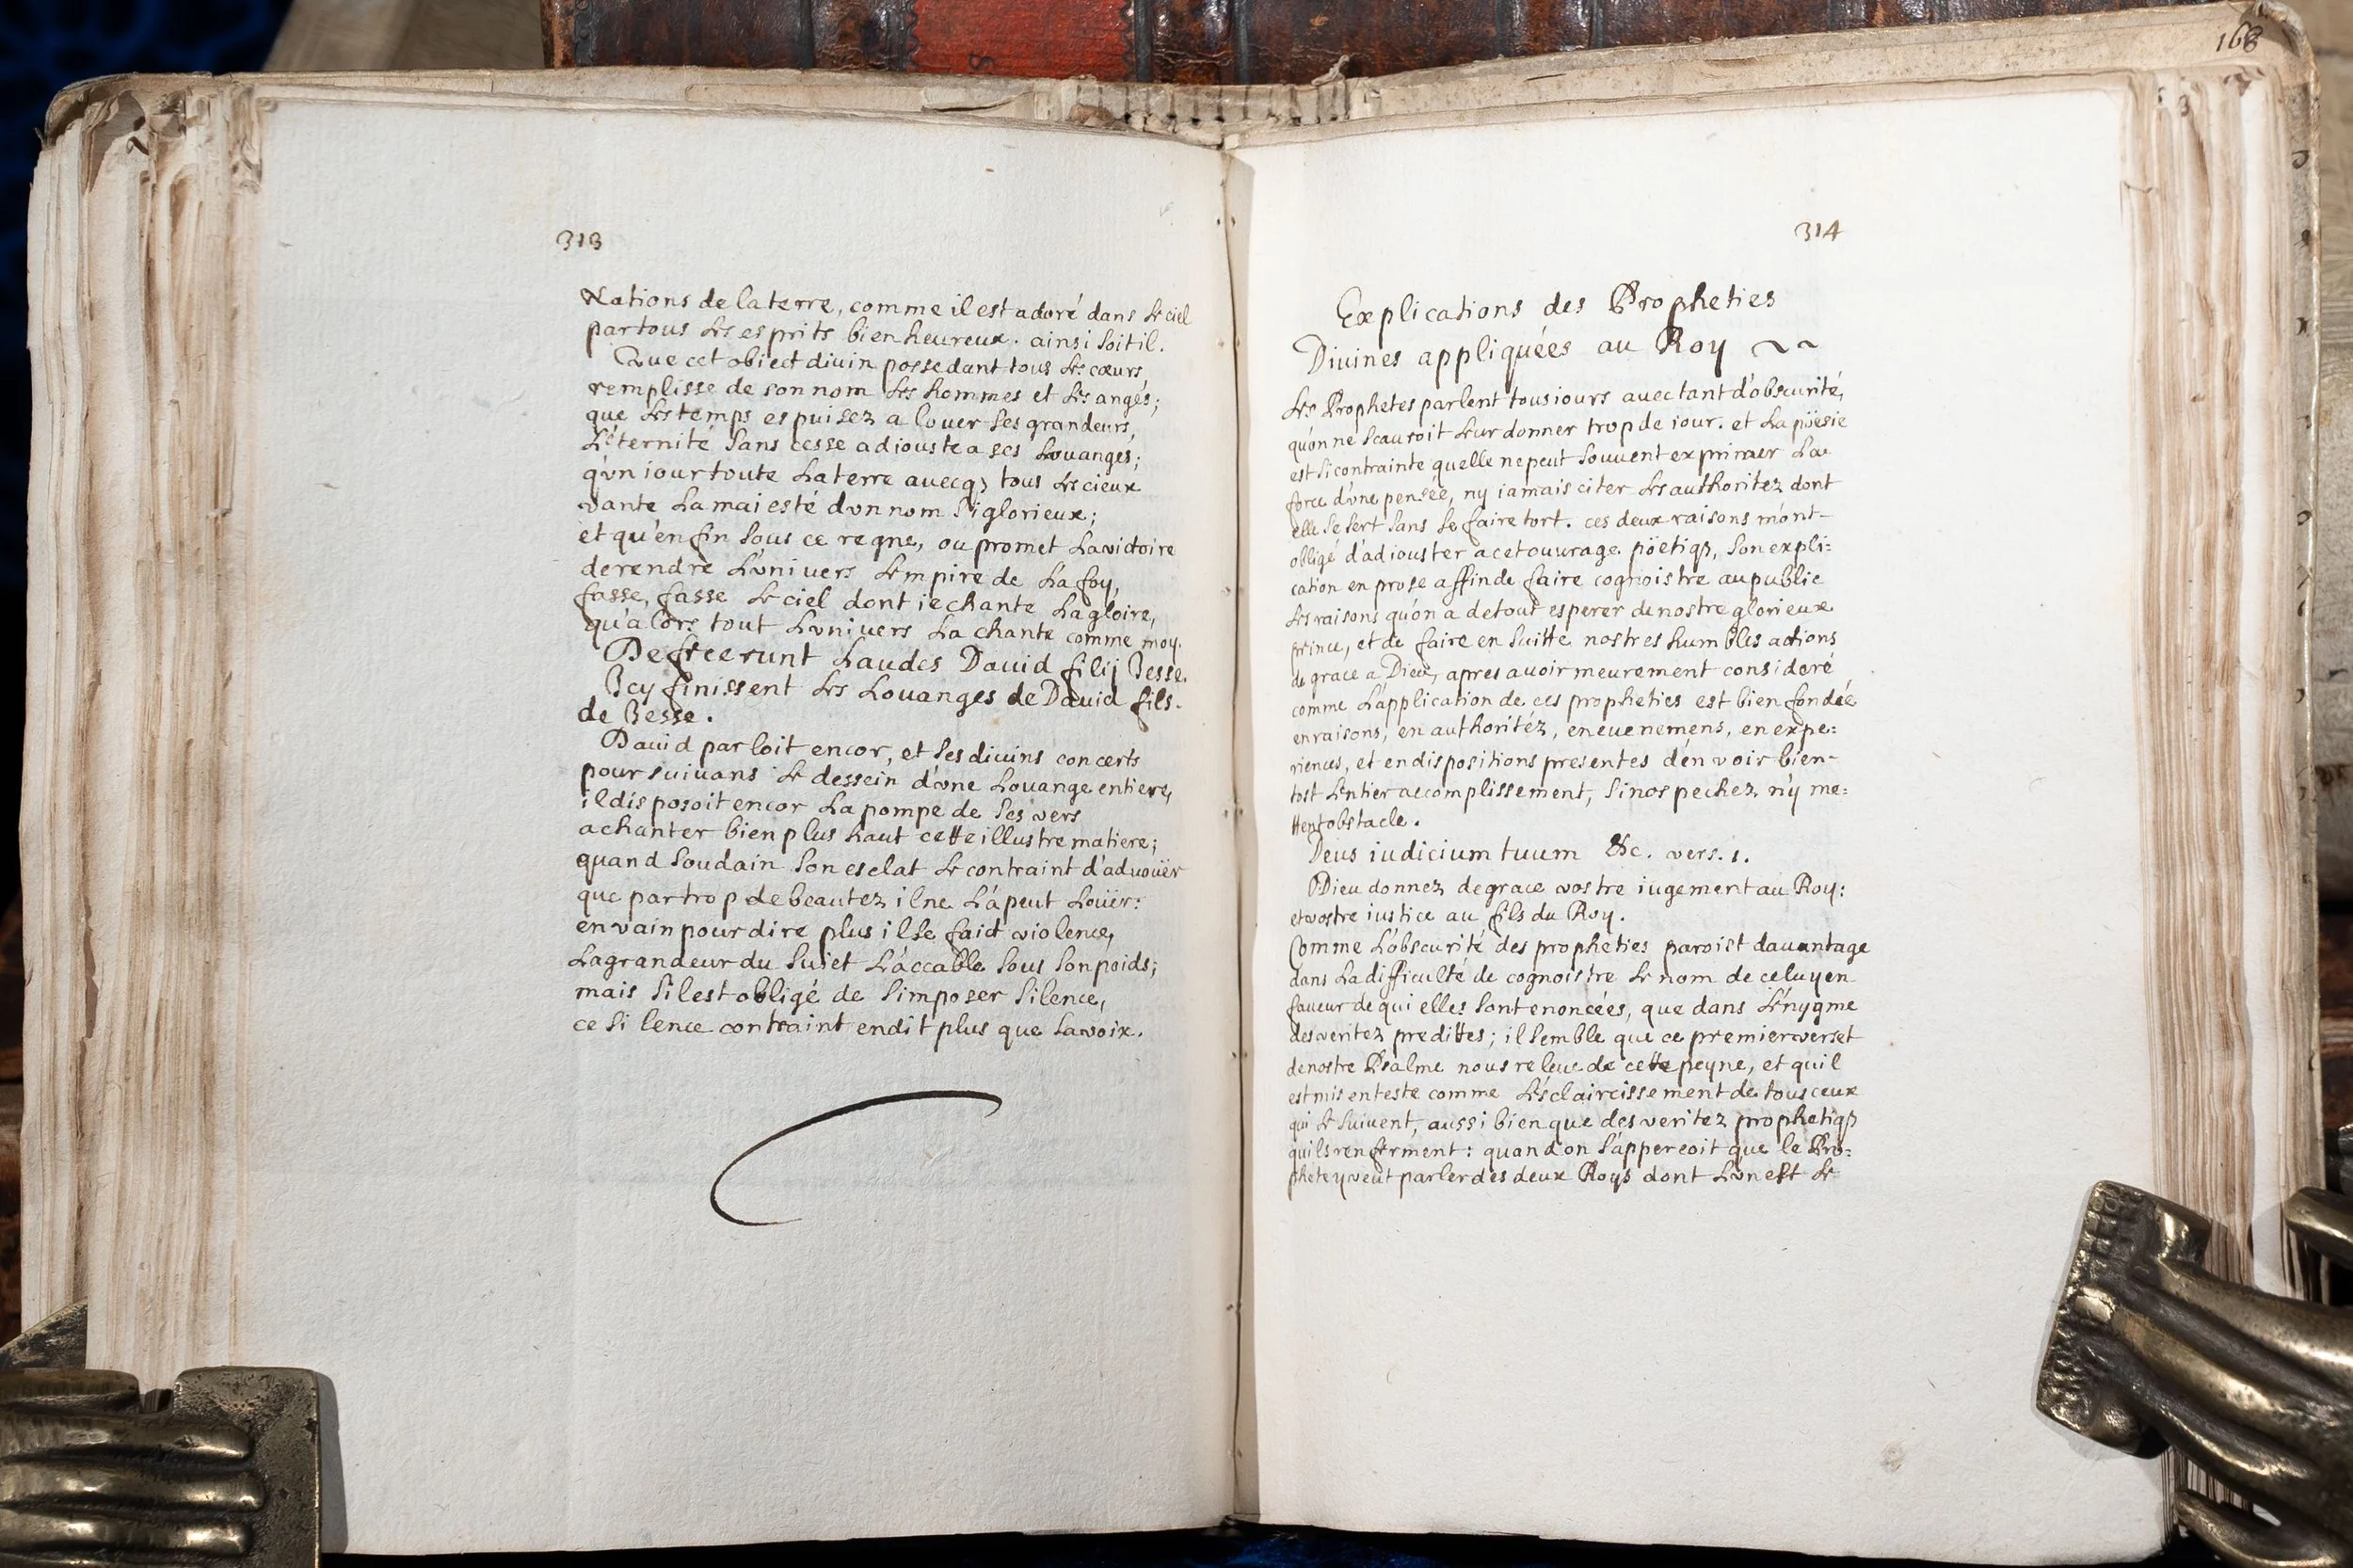 313
Nations de la terre, comme il est adoré dans le ciel
par tous les esprits bienheureux. ainsi soit il.
Que cet obiect diuin possedant tous les cœurs,
remplisse de son nom les hommes et les anges;
que les temps espuisez a louer ses grandeurs,
l'éternité sans cesse adiouste a ses louanges;
qu'vn iour toute la terre auecq; tous les cieux
vante la maiesté d'vn nom si glorieux;
et qu'enfin sous ce regne, ou promet la victoire
de rendre l'vniuers l'empire de la foy,
fasse, fasse le ciel dont ie chante la gloire,
qu'alors tout l'vniuers la chante comme moy.
Defecerunt laudes Dauid filij Iesse.
Icy finissent les louanges de Dauid fils
de Iesse.
Dauid parloit encor, et ses diuins concerts
poursuiuans le dessein d'vne louange entiere,
il disposoit encor la pompe de ses vers
a chanter bien plus haut cette illustre matiere;
quand soudain son esclat le contraint d'aduoüer
que par trop de beautez il ne l'a peut loüer:
en vain pour dire plus il se faict violence,
la grandeur du suiet l'accable sous son poids;
mais s'il est obligé de s'imposer silence,
ce silence contraint en dit plus que la voix.
168
314
Explications des Propheties
Diuines appliquées au Roy ~~
Les Prophetes parlent tousiours auec tant d'obscurité,
qu'on ne scauroit leur donner trop de iour. et la poësie
est si contrainte quelle ne peut souuent exprimer la
force d'vne pensée, ny iamais citer les authoritez dont
elle se sert sans se faire tort. ces deux raisons m'ont
obligé d'adiouster a cet ouurage poëtiq;, son expli=
cation en prose affin de faire cognoistre au public
les raisons qu'on a de tout esperer de nostre glorieux
prince, et de faire en suitte nos tres humbles actions
de grace a Dieu, apres auoir meurement consideré
comme l'application de ces propheties est bien fondée
en raisons, en authoritéz, en euenemens, en expe=
riences, et en dispositions presentes d'en voir bien-
tost l'entier accomplissement, si nos pechez n'y me=
ttent obstacle.
Deus iudicium tuum &c. vers. 1.
Dieu donnez de grace vostre iugement au Roy:
et vostre iustice au fils du Roy.
Comme l'obscurité des propheties paroist dauantage
dans la difficulté de cognoistre le nom de celuy en
faueur de qui elles sont enoncées, que dans l'énygme
des veritez predittes; il semble que ce premier verset
de nostre Psalme nous releue de cette peyne, et quil
est mis en teste comme l'ésclaircissement de tous ceux
qui le suiuent, aussi bien que des veritez prophetiq;
quils renferment: quand on s'apperçoit que le Pro=
phete y veut parler des deux Roys dont l'vn est le